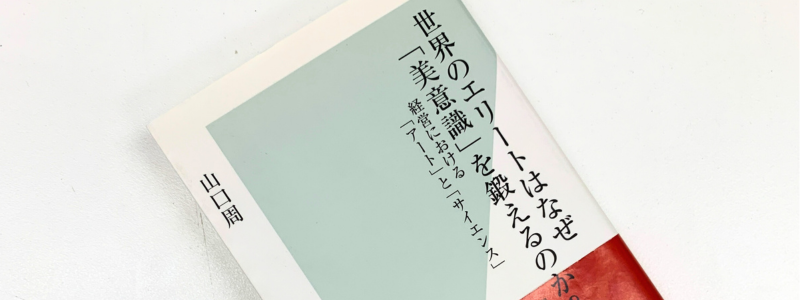 世界のエリートはなぜ
「美意識」を鍛えるのか。
経営における
「アート」と「サイエンス」
山口周